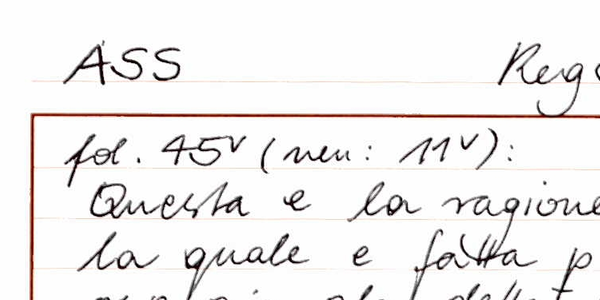 ASS Reg
fol. 45v (neu: 11v):
Questa e la ragione
la quale e fatta p